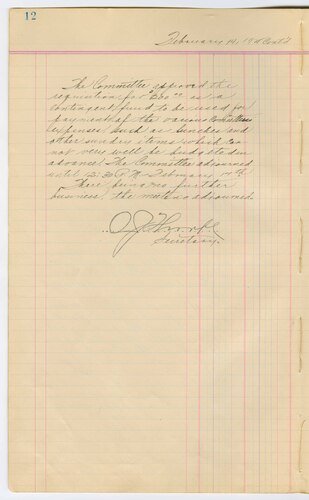 12
February 14, 19 Cont'd
The Committee approved the
requisition for as a
contingent fund to be used for
payment of the various Committee
expenses such as lunches and
other sundry items which can
not very well be budgeted in
advance. The Committee adjourned
until 12:30 P.M. February
There being no further
business the meeting adjourned.
Secretary.